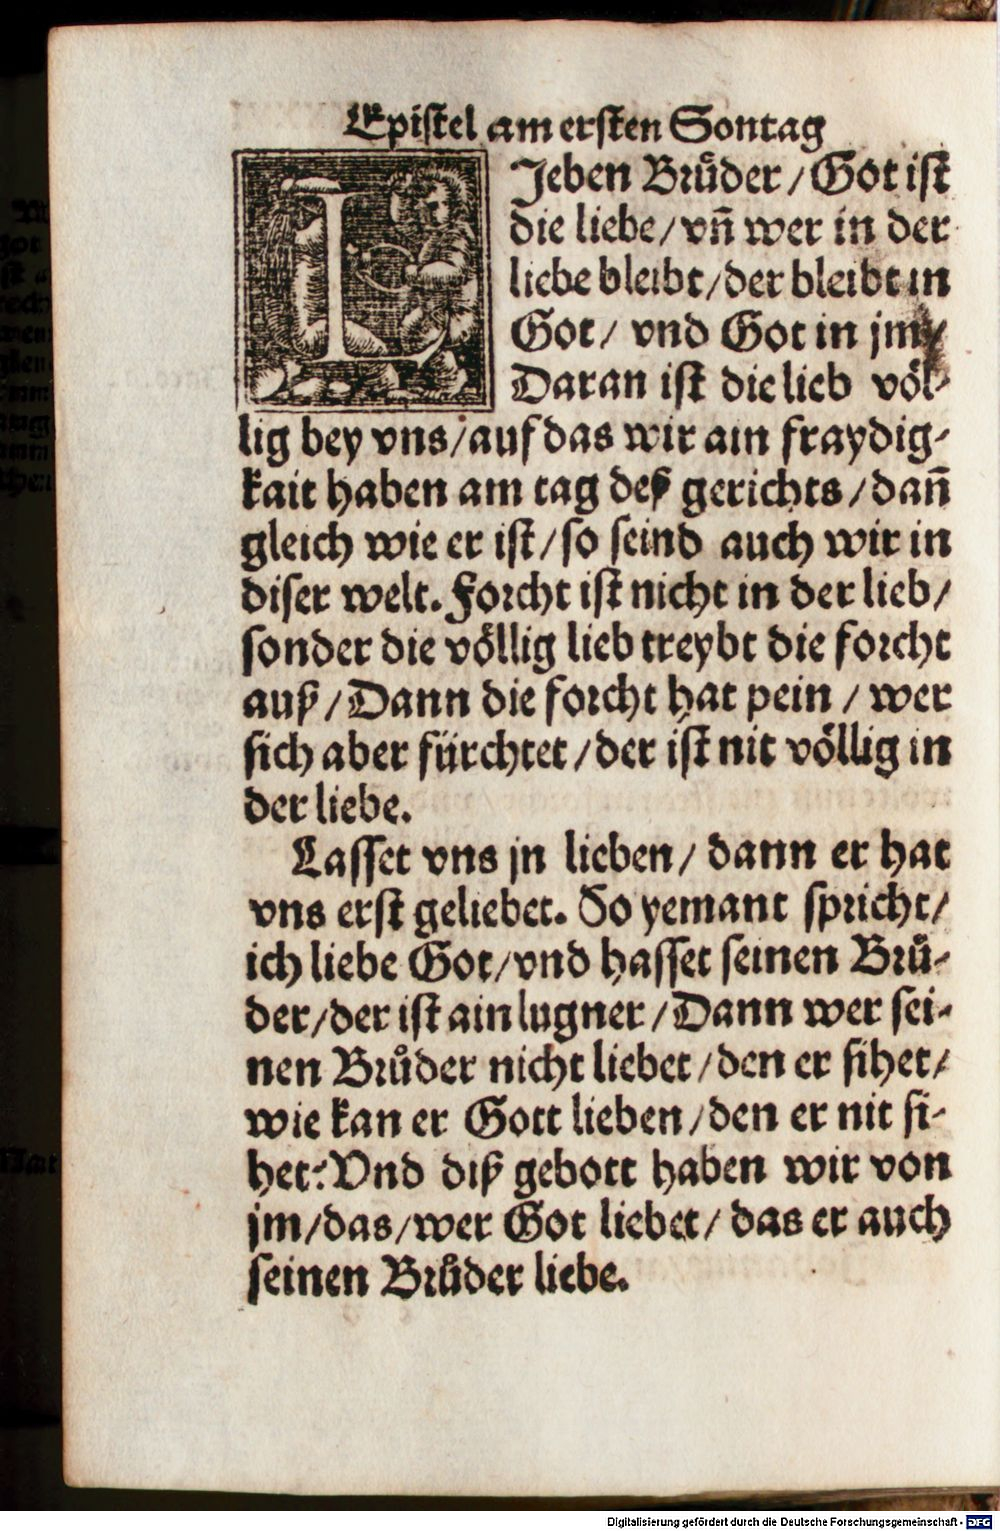 Epiſtel am erſten Sontag
LJeben Bruͤder / Got iſt
die liebe / vn̄ wer in der
liebe bleibt / der bleibt in
Got / vnd Got in jm /
Daran iſt die lieb voͤl⸗
lig bey vns / auf das wir ain fraydig⸗
kait haben am tag deß gerichts / dan̄
gleich wie er iſt / ſo ſeind auch wir in
diſer welt. Forcht iſt nicht in der lieb /
ſonder die voͤllig lieb treybt die forcht
auß / Dann die forcht hat pein / wer
ſich aber fürchtet / der iſt nit voͤllig in
der liebe.
Laſſet vns jn lieben / dann er hat
vns erſt geliebet. So yemant ſpricht /
ich liebe Got / vnd haſſet ſeinen Bruͤ⸗
der / der iſt ain lugner / Dann wer ſei⸗
nen Bruͦder nicht liebet / den er ſihet /
wie kan er Gott lieben / den er nit ſi⸗
het? Vnd diß gebott haben wir von
jm / das / wer Got liebet / das er auch
ſeinen Bruͦder liebe.
Digitalisierung gefördert durch die Deutsche Forschungsgemeinschaft - DFG